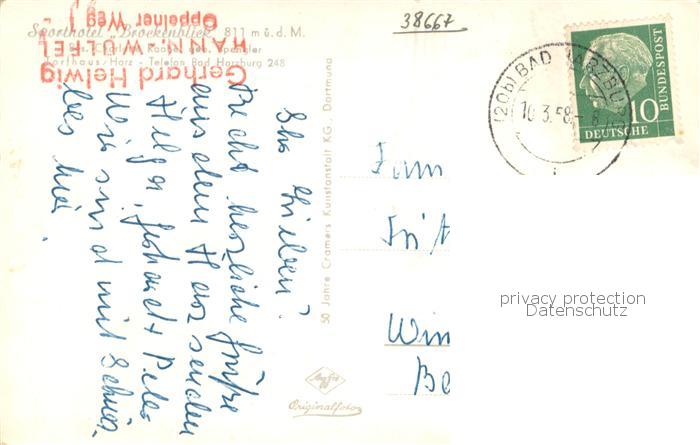 Sporthotel "Brockenblick" 811 m ü. d. M.
Torfhaus/Harz - Telefon Bad Harzburg 248
Gerhard Helwig
HANN.-WÜLFEL
Oppelner Weg 1
38667
(20b) BAD HARZBURG
10.3.58.-8
10
DEUTSCHE
BUNDESPOST
Ihr Lieben!
Recht herzliche Grüße
aus dem Harz senden
Helga, Gerhard + Peter
Wir sind mit Schnee
hier.
50 Jahre Cramers Kunstanstalt KG., Dortmund
Fam
Frit
Win
Be
Agfa
Originalfoto
privacy protection
Datenschutz